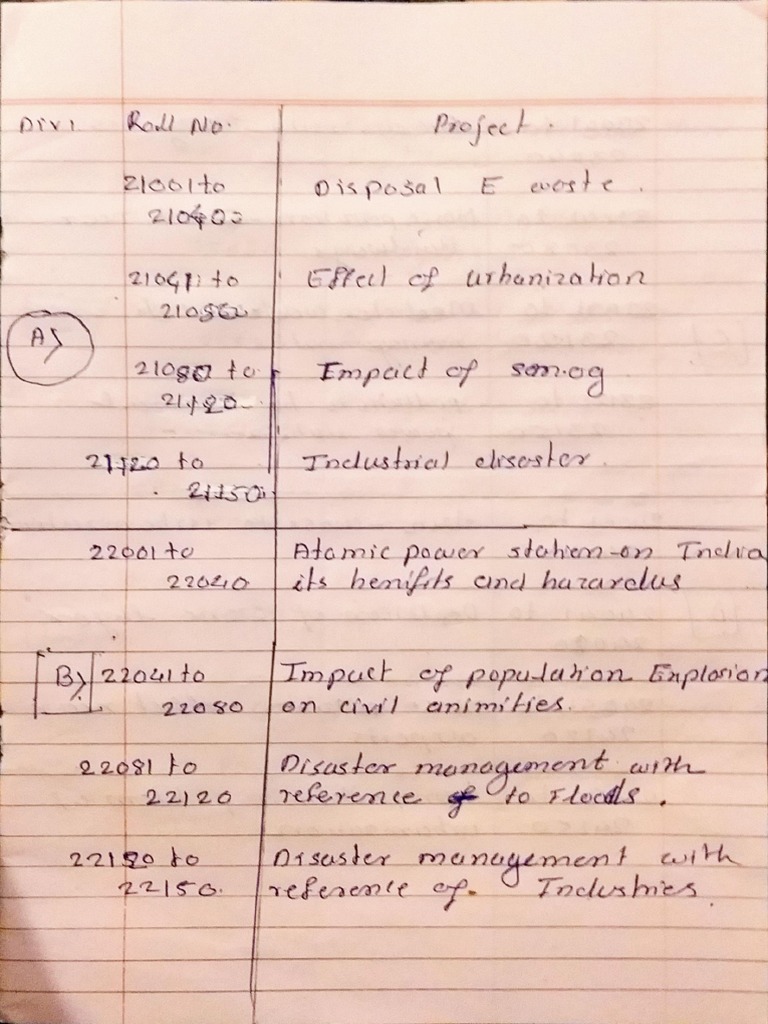 Divi Roll No. Project.
21001 to Disposal E waste.
21041 to Effect of urbanization
A)
21080 to Impact of smog
21120
21120 to Industrial disaster.
21150
22001 to Atomic power station on India
22040 its benifits and hazardus
B) 22041 to Impact of population Explosion
22080 on civil animities.
22081 to Disaster management with
22120 reference to Floods.
22120 to Disaster management with
22150. reference of. Industries.